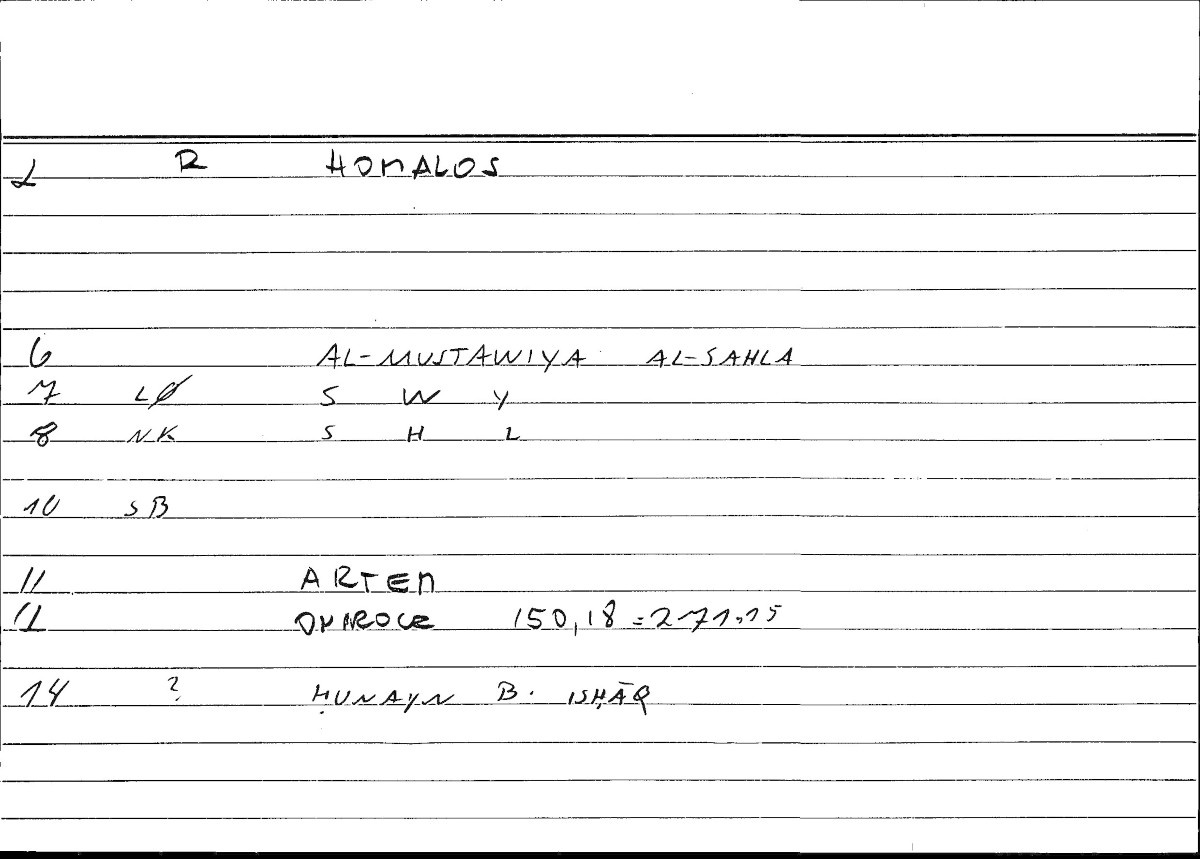 2 R HOMALOS
6 AL-MUSTAWIYA AL-SAHLA
7 LØ S W Y
8 NK S H L
10 SB
11 ARTEM
12 150,18 = 271,15
14 ? ḤUNAYN B. ISḤĀQ